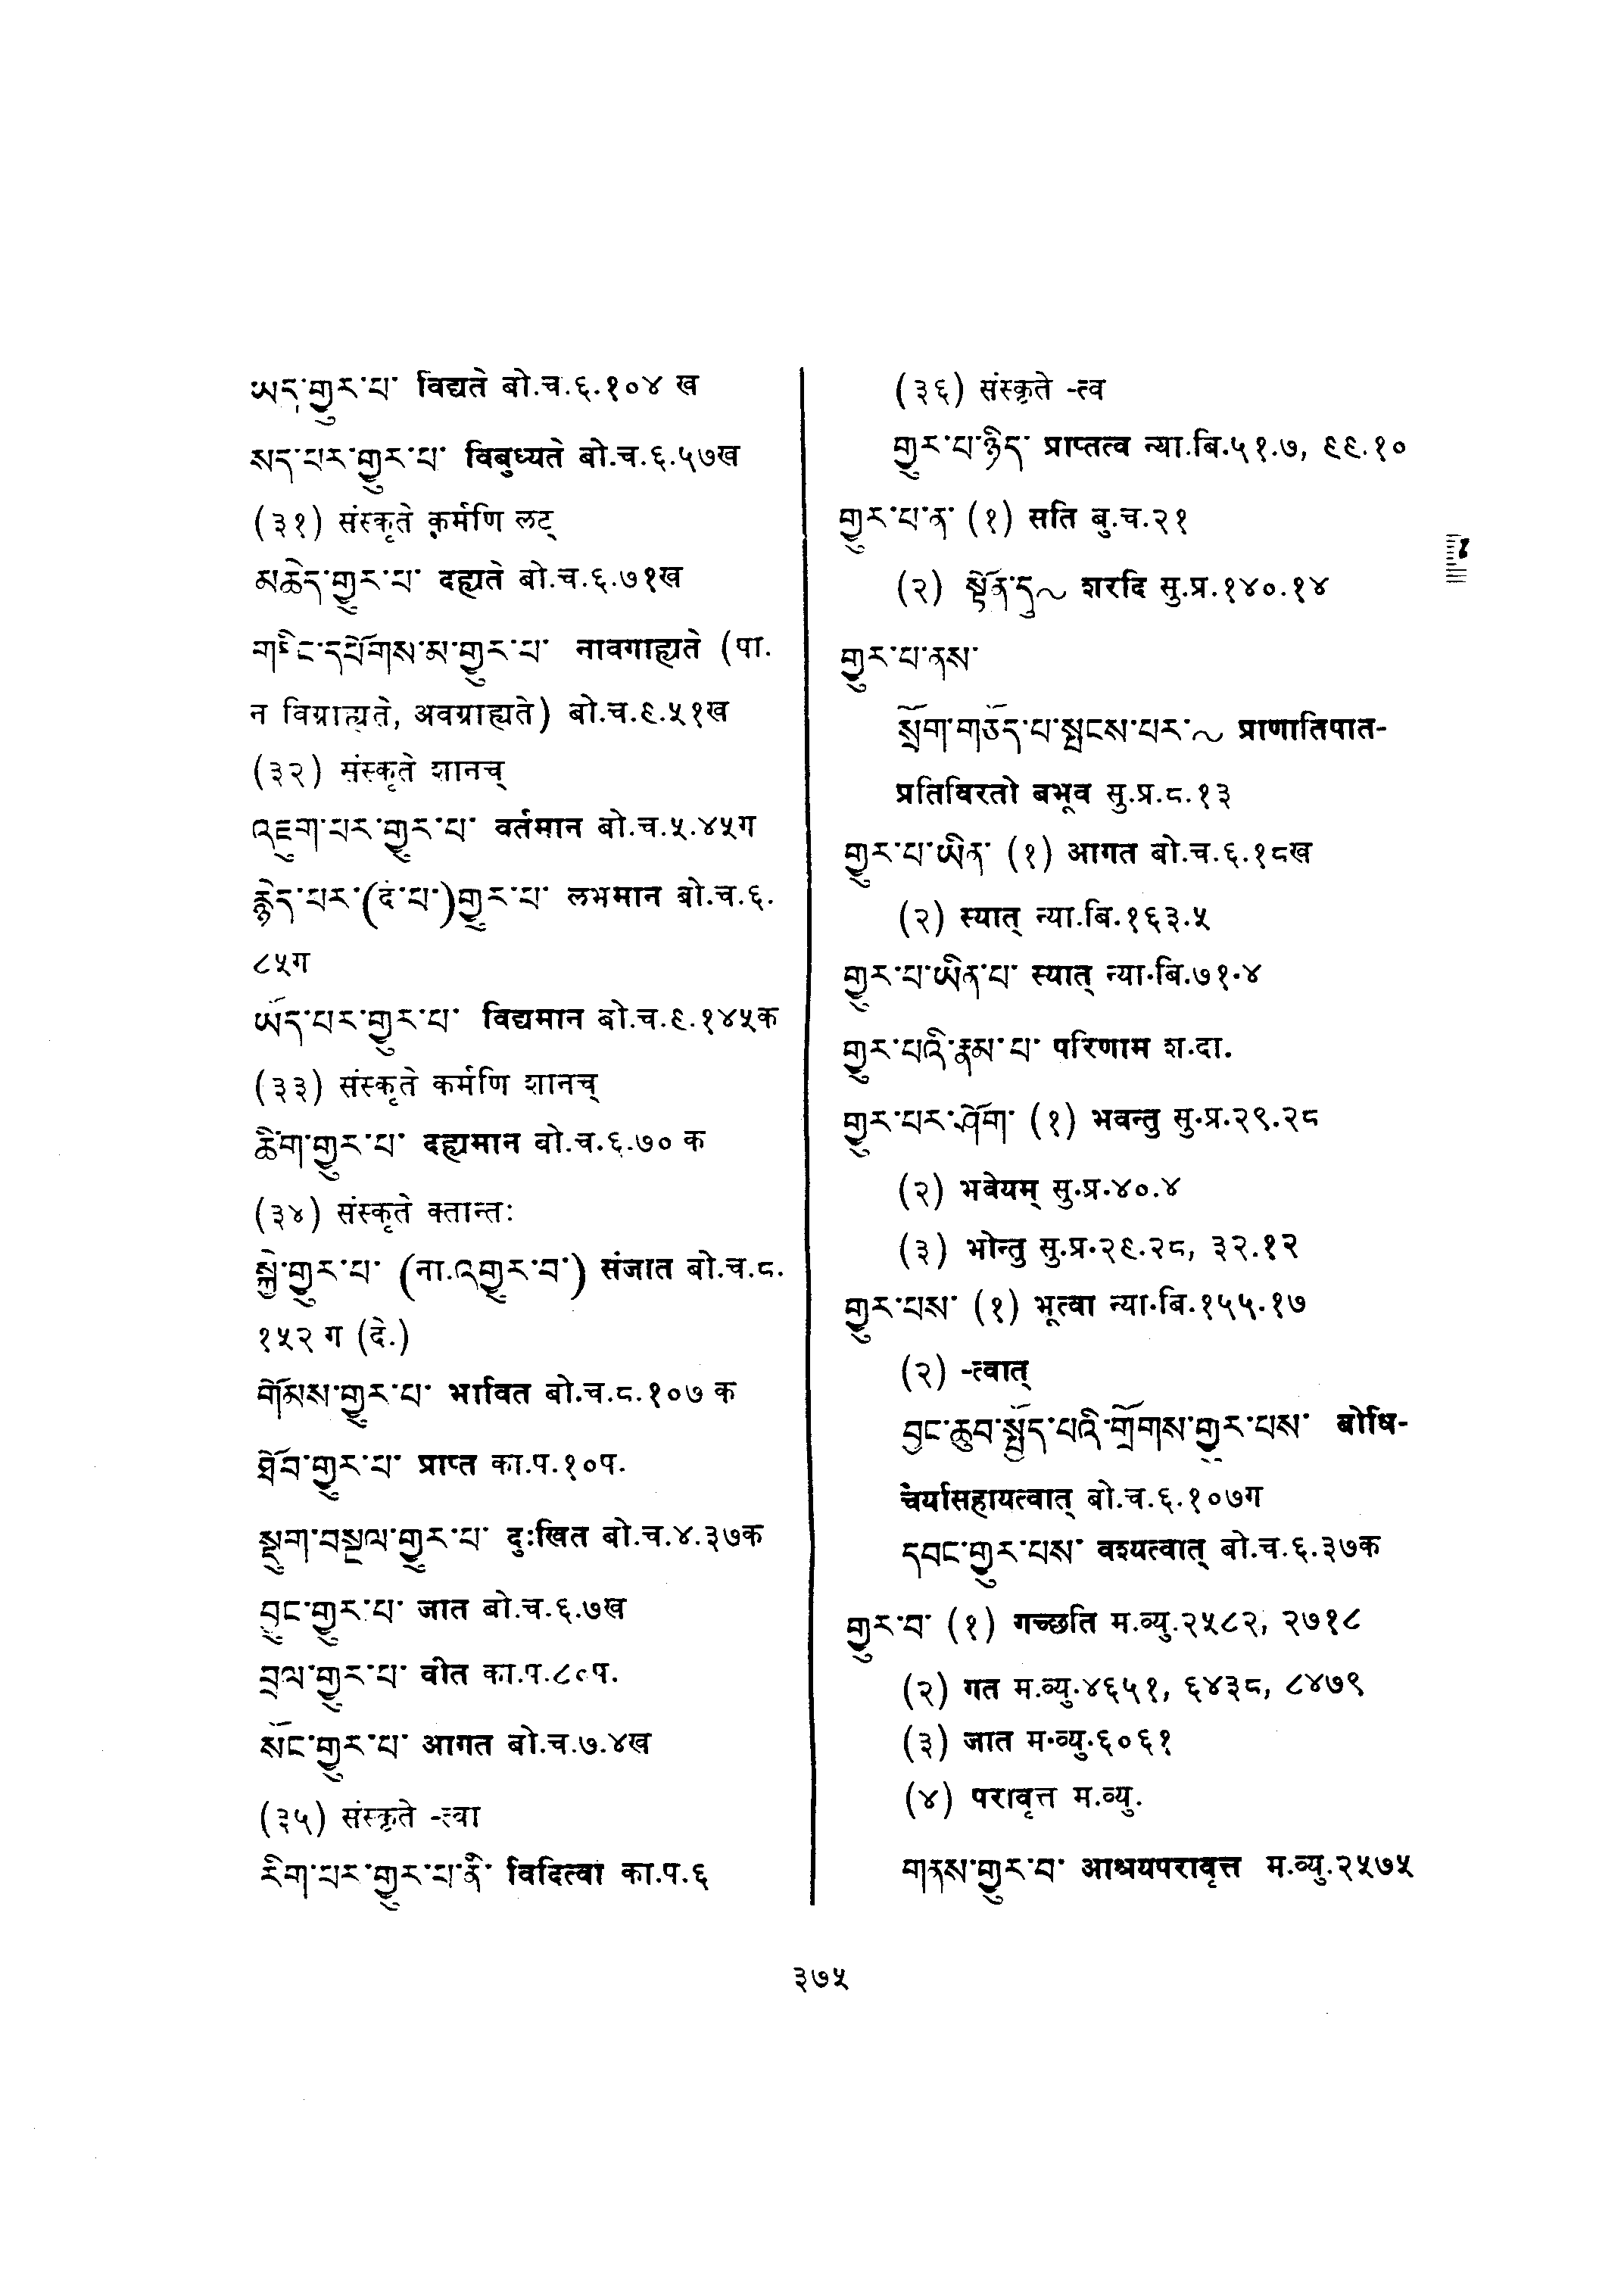 ཡད་གྱུར་པ་ विद्यते बो.च.६.१०४ ख
སད་པར་གྱུར་པ་ विबुध्यते बो.च.६.५७ख
(३१) संस्कृते कर्मणि लट्
མཆེད་གྱུར་པ་ दह्यते बो.च.६.७१ख
གཏིང་དཔོགས་མ་གྱུར་པ་ नावगाह्यते (पा.
न विग्राह्यते, अवग्राह्यते) बो.च.९.५१ख
(३२) संस्कृते शानच्
འཇུག་པར་གྱུར་པ་ वर्तमान बो.च.५.४५ग
རྙེད་པར་(དཾ་པ་)གྱུར་པ་ लभमान बो.च.६.
८५ग
ཡོད་པར་གྱུར་པ་ विद्यमान बो.च.९.१४५क
(३३) संस्कृते कर्मणि शानच्
ཚིག་གྱུར་པ་ दह्यमान बो.च.६.७० क
(३४) संस्कृते क्तान्तः
སྐྱེ་གྱུར་པ་ (ना.འགྱུར་བ་) संजात बो.च.८.
१५२ ग (दे.)
གོམས་གྱུར་པ་ भावित बो.च.८.१०७ क
ཐོབ་གྱུར་པ་ प्राप्त का.प.१०प.
སྡུག་བསྔལ་གྱུར་པ་ दुःखित बो.च.४.३७क
བྱུང་གྱུར་པ་ जात बो.च.६.७ख
བྲལ་གྱུར་པ་ वीत का.प.८०प.
སོང་གྱུར་པ་ आगत बो.च.७.४ख
(३५) संस्कृते -त्वा
རིག་པར་གྱུར་པ་ནི་ विदित्वा का.प.६
(३६) संस्कृते -त्व
གྱུར་པ་ཉིད་ प्राप्तत्व न्या.बि.५१.७, ९९.१०
གྱུར་པ་ན་ (१) सति बु.च.२१
(२) སྟོན་དུ~ शरदि सु.प्र.१४०.१४
གྱུར་པ་ནས་
སྲོག་གཅོད་པ་སྤངས་པར་~ प्राणातिपात-
प्रतिविरतो बभूव सु.प्र.८.१३
གྱུར་པ་ཡིན་ (१) आगत बो.च.६.१८ख
(२) स्यात् न्या.बि.१६३.५
གྱུར་པ་ཡིན་པ་ स्यात् न्या.बि.७१.४
གྱུར་པའི་རྣམ་པ་ परिणाम श.दा.
གྱུར་པར་ཤོག་ (१) भवन्तु सु.प्र.२९.२८
(२) भवेयम् सु.प्र.४०.४
(३) भोन्तु सु.प्र.२९.२८, ३२.१२
གྱུར་པས་ (१) भूत्वा न्या.बि.१५५.१७
(२) -त्वात्
བྱང་ཆུབ་སྤྱོད་པའི་གྲོགས་གྱུར་པས་ बोधि-
चर्यासहायत्वात् बो.च.६.१०७ग
དབང་གྱུར་པས་ वश्यत्वात् बो.च.६.३७क
གྱུར་བ་ (१) गच्छति म.व्यु.२५८२, २७१८
(२) गत म.व्यु.४६५१, ६४३८, ८४७९
(३) जात म.व्यु.६०६१
(४) परावृत्त म.व्यु.
གནས་གྱུར་བ་ आश्रयपरावृत्त म.व्यु.२५७५
३७५